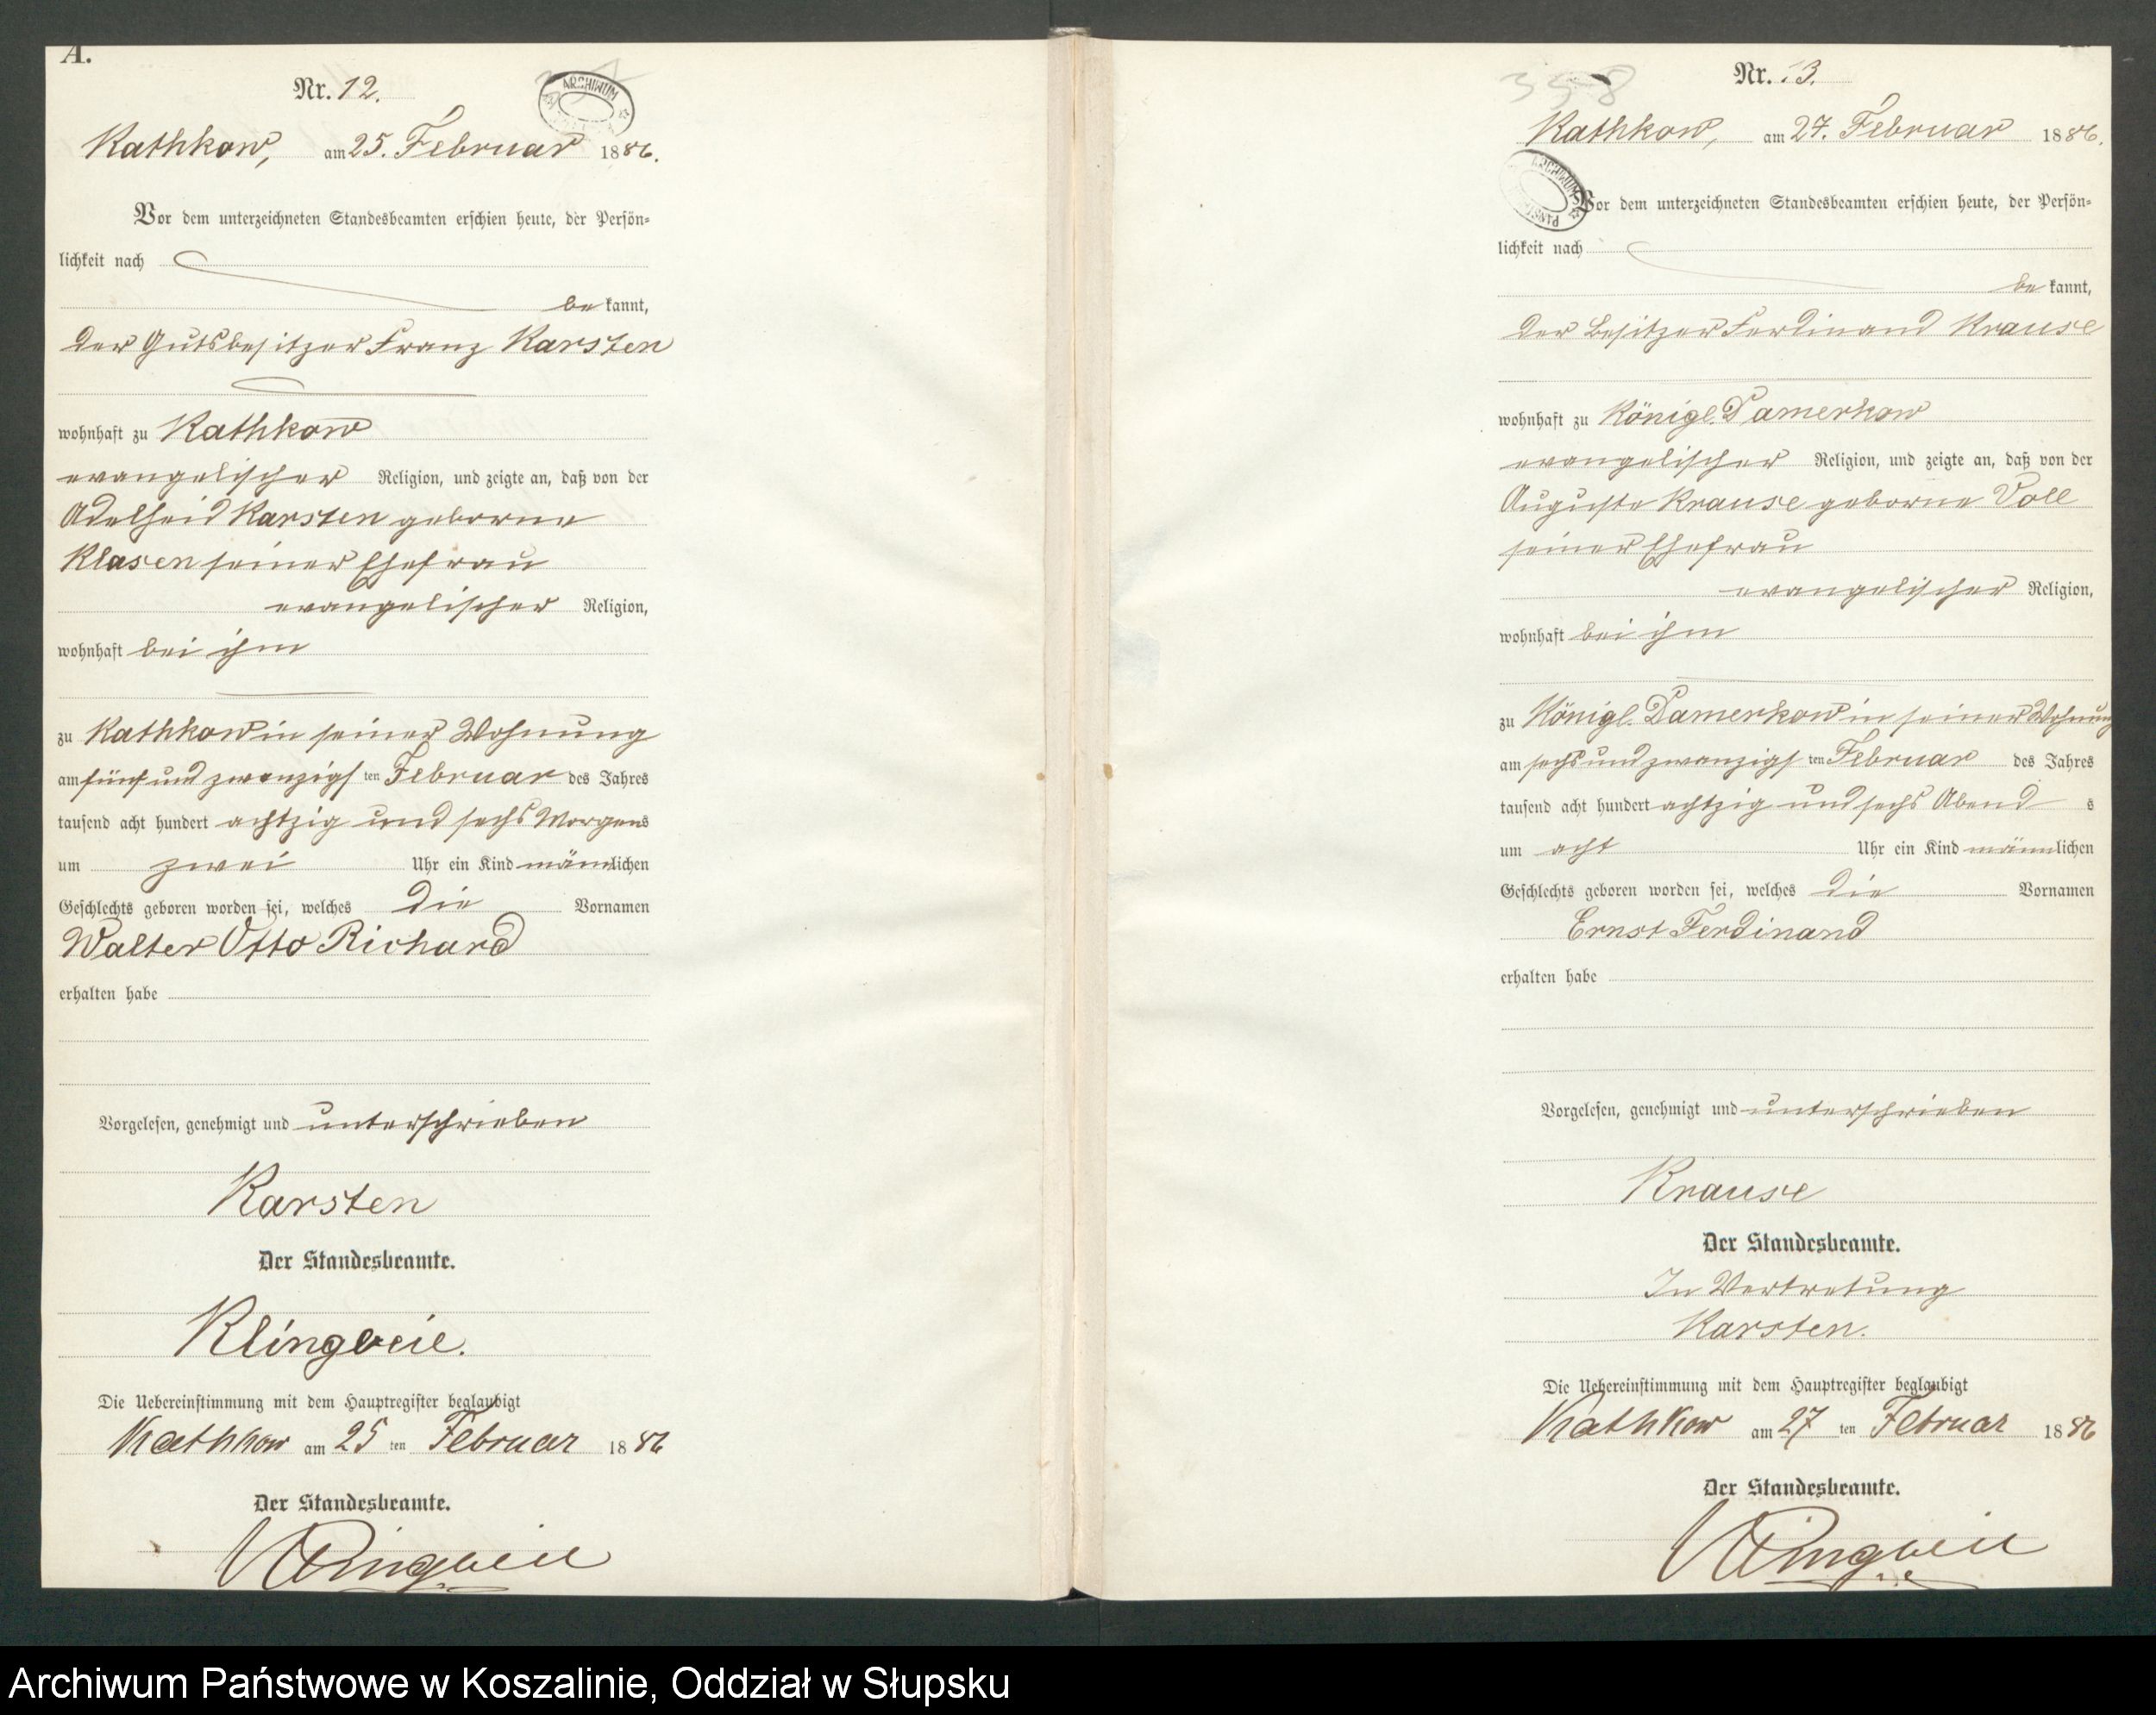 A.
Nr. 12.
ARCHIWUM
Kathkow, am 25. Februar 1886.
Vor dem unterzeichneten Standesbeamten erschien heute, der Persön-
lichkeit nach
be kannt,
der Gutsbesitzer Franz Karsten
wohnhaft zu Kathkow
evangelischer Religion, und zeigte an, daß von der
Adelheid Karsten geborne
Klasen seiner Ehefrau
evangelischer Religion,
wohnhaft bei ihm
zu Kathkow in seiner Wohnung
am fünf und zwanzigs ten Februar des Jahres
tausend acht hundert achtzig und sechs Morgens
um zwei Uhr ein Kind männlichen
Geschlechts geboren worden sei, welches die Vornamen
Walter Otto Richard
erhalten habe
Vorgelesen, genehmigt und unterschrieben
Karsten
Der Standesbeamte.
Klingbeil.
Die Uebereinstimmung mit dem Hauptregister beglaubigt
Kathkow am 25 ten Februar 1886
Der Standesbeamte.
Klingbeil
358
Nr. 13.
Kathkow, am 27. Februar 1886.
ARCHIWUM
Vor dem unterzeichneten Standesbeamten erschien heute, der Persön-
lichkeit nach
be kannt,
der Besitzer Ferdinand Krause
wohnhaft zu Königl. Damerkow
evangelischer Religion, und zeigte an, daß von der
Auguste Krause geborne Voll
seiner Ehefrau
evangelischer Religion,
wohnhaft bei ihm
zu Königl. Damerkow in seiner Wohnung
am sechs und zwanzigs ten Februar des Jahres
tausend acht hundert achtzig und sechs Abend s
um acht Uhr ein Kind männlichen
Geschlechts geboren worden sei, welches die Vornamen
Ernst Ferdinand
erhalten habe
Vorgelesen, genehmigt und unterschrieben
Krause
Der Standesbeamte.
In Vertretung
Karsten.
Die Uebereinstimmung mit dem Hauptregister beglaubigt
Kathkow am 27 ten Februar 1886
Der Standesbeamte.
Klingbeil
Archiwum Państwowe w Koszalinie, Oddział w Słupsku